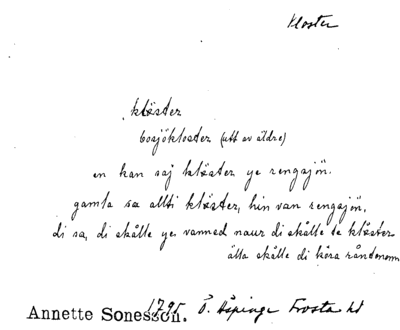 Kloster
klöster
bosjökloster (utt av äldre)
en kan säj klöster ye rengsjön.
gamla sa allti klöster, hin van rengsjön.
di sa, di skålle ye vanned naur di skålle te klöster
älla skålle di köra råndenom
Annette Sonesson. 1795 Ö. Äspinge Frosta hd